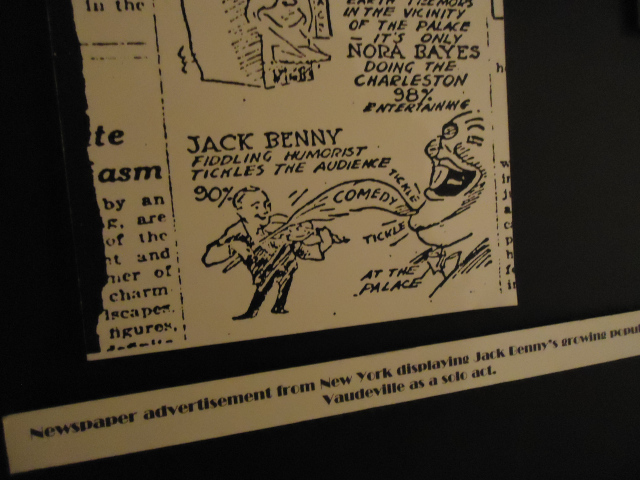 in the
EARTH TREMORS
IN THE VICINITY
OF THE PALACE
IT'S ONLY
NORA BAYES
DOING THE
CHARLESTON
98%
ENTERTAINING
JACK BENNY
FIDDLING HUMORIST
TICKLES THE AUDIENCE
90%
COMEDY
TICKLE
TICKLE
AT THE
PALACE
asm
by an
are
of the
and
of
charm
figures,
Newspaper advertisement from New York displaying Jack Benny's growing
Vaudeville as a solo act.